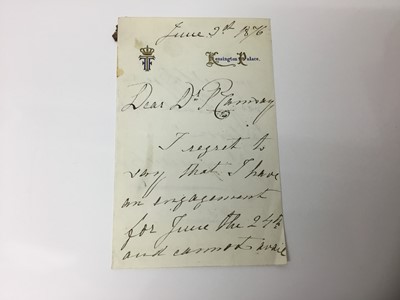 June 2d 1876
Kensington Palace.
Dear Dr Ramsay
I regret to
say that I have
an engagement
for June the 24th
and cannot avail